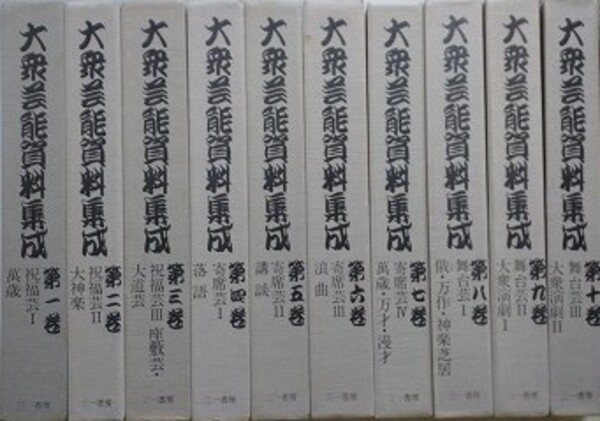 大衆芸能資料集成
第一巻
祝福芸Ⅰ
萬歳
三一書房
大衆芸能資料集成
第二巻
祝福芸Ⅱ
大神楽
三一書房
大衆芸能資料集成
第三巻
祝福芸Ⅲ 座敷芸・
大道芸
三一書房
大衆芸能資料集成
第四巻
寄席芸Ⅰ
落語
三一書房
大衆芸能資料集成
第五巻
寄席芸Ⅱ
講談
三一書房
大衆芸能資料集成
第六巻
寄席芸Ⅲ
浪曲
三一書房
大衆芸能資料集成
第七巻
寄席芸Ⅳ
萬歳・万才・漫才
三一書房
大衆芸能資料集成
第八巻
舞台芸Ⅰ
俄・万作・神楽芝居
三一書房
大衆芸能資料集成
第九巻
舞台芸Ⅱ
大衆演劇Ⅰ
三一書房
大衆芸能資料集成
第十巻
舞台芸Ⅲ
大衆演劇Ⅱ
三一書房